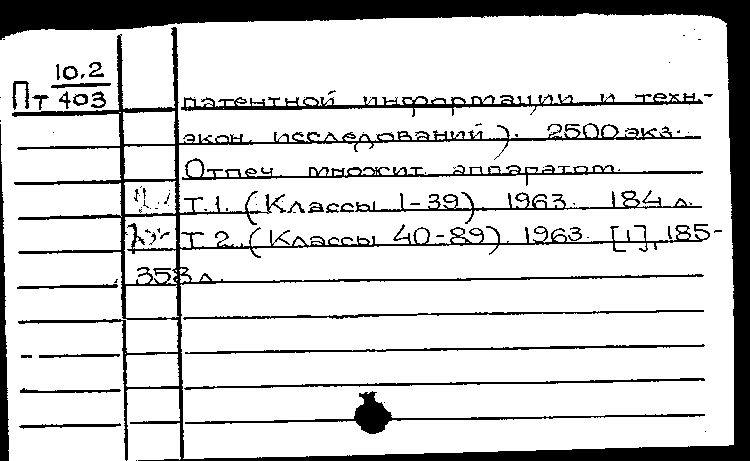 10.2
Пт 403
патентной информации и техн.-
экон. исследований). 2500 экз.
Отпеч. множит. аппаратом.
Т.1. (Классы 1-39). 1963. 184 л.
Т.2. (Классы 40-89). 1963. [1], 185-
358 л.